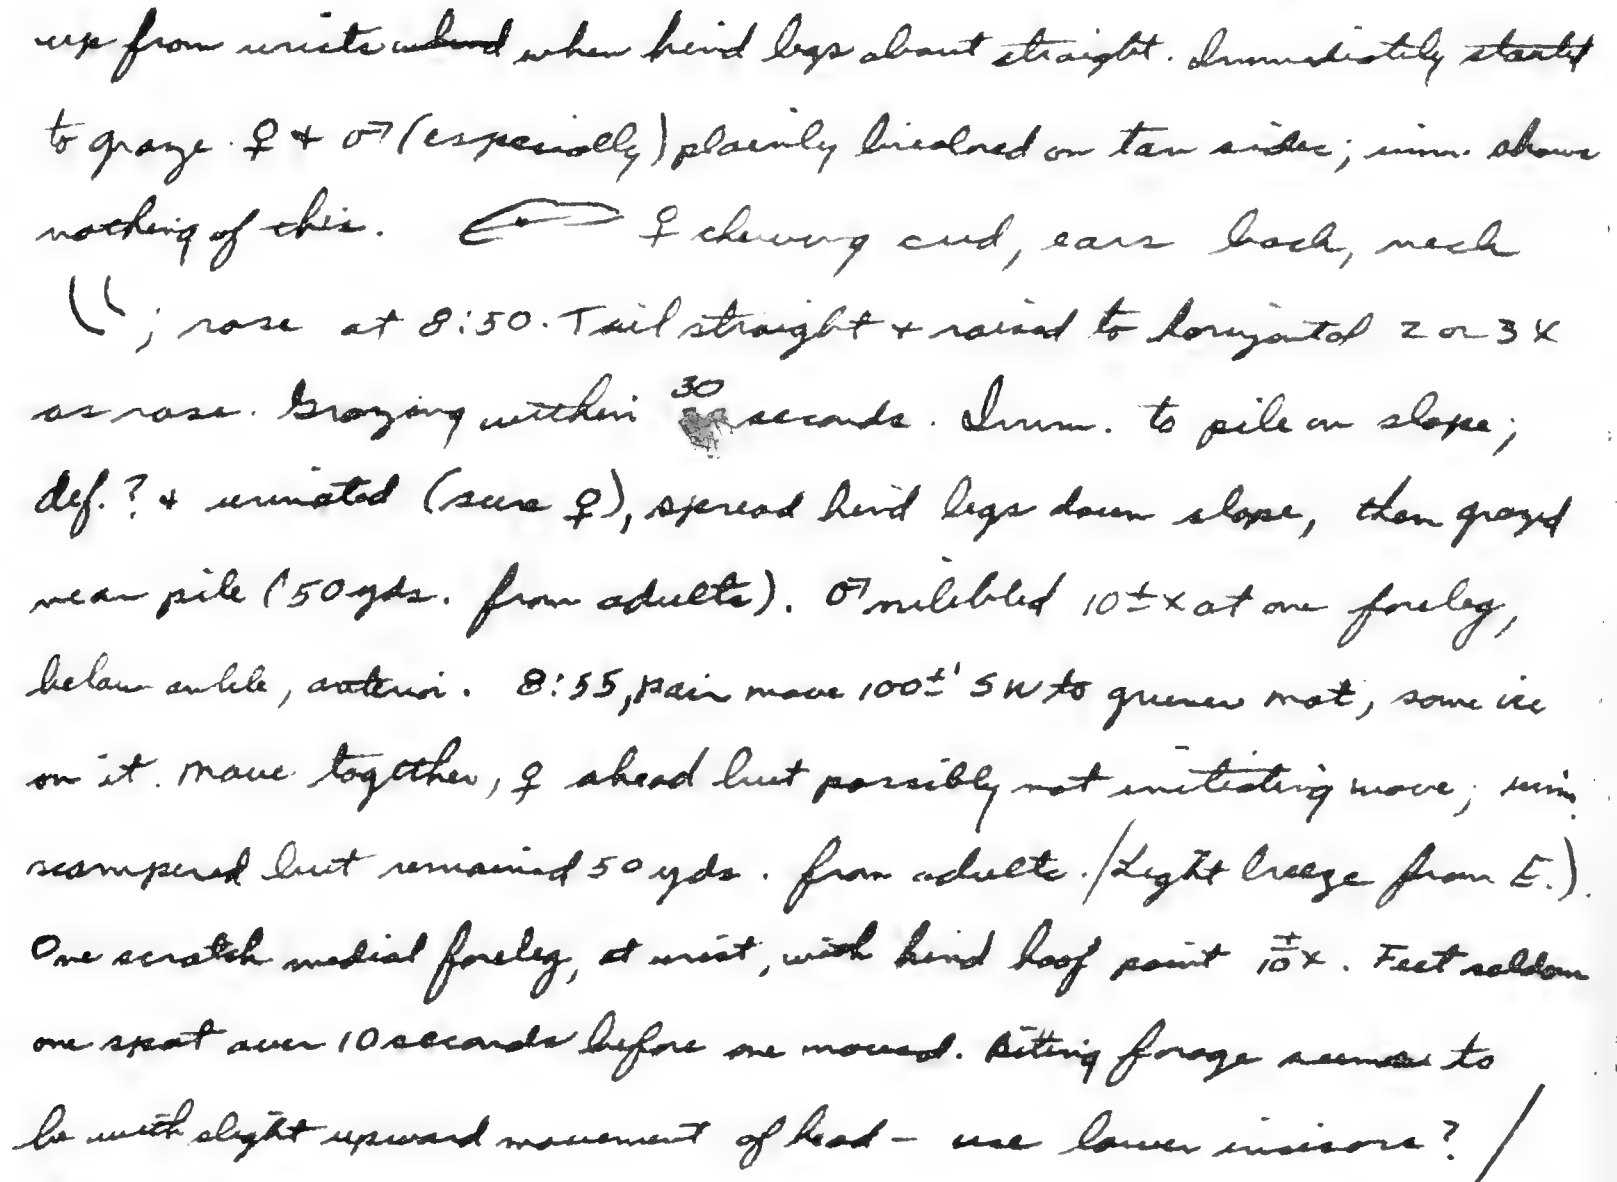 up from wrists when hind legs about straight. Immediately started
to graze. ♀ + ♂ (especially) plainly bicolored on tan sides; imm. shows
nothing of this. ♀ chewing cud, ears back, neck
; rose at 8:50. Tail straight + raised to horizontal 2 or 3 X
as rose. Grazing within 30 seconds. Imm. to pile on slope;
def.? + urinated (sure ♀), spread hind legs down slope, then grazed
near pile (50 yds. from adults). ♂ nibbled 10± x at one foreleg,
below ankle, anterior. 8:55, pair move 100±' SW to greener mat, some ice
on it. Move together, ♀ ahead but possibly not initiating move; imm.
scampered but remained 50 yds. from adults. (Light breeze from E.).
One scratch medial foreleg, at wrist, with hind hoof point ±10 x. Feet seldom
one spot over 10 seconds before one moved. Biting forage seems to
be with slight upward movement of head – use lower incisors? /